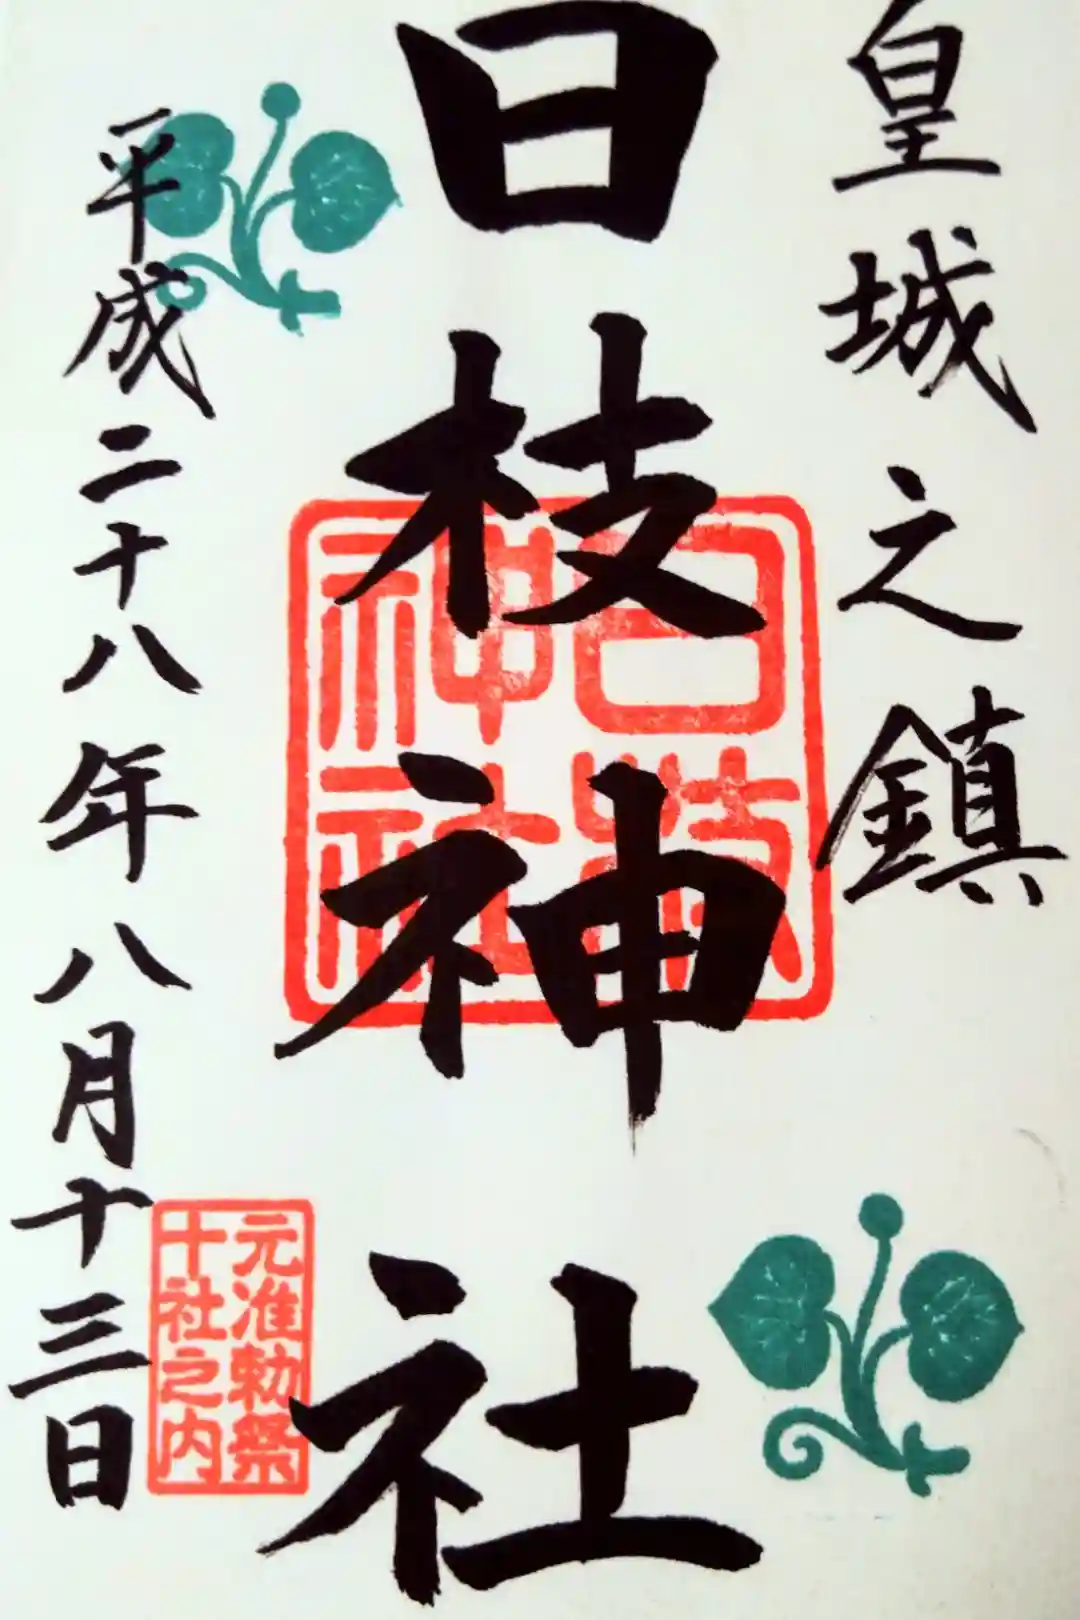 皇城之鎮
日枝神社
日枝神社
元准勅祭
十社之内
平成二十八年八月十三日